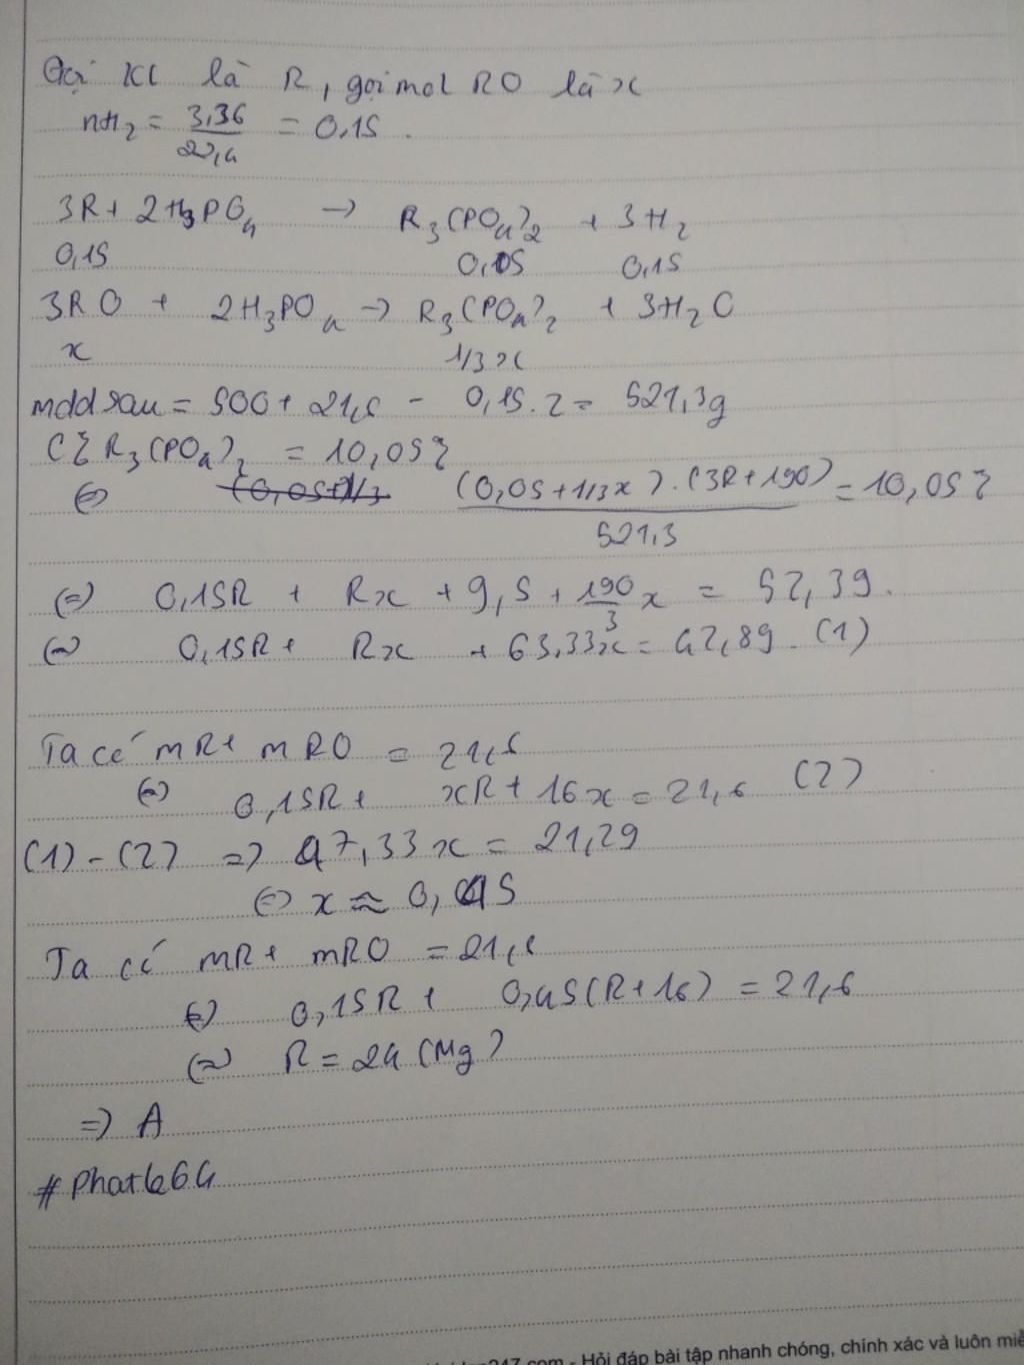 Gọi KL là R, gọi mol RO là x
nH₂ = 3,36/22,4 = 0,15.
3R + 2H₃PO₄ → R₃(PO₄)₂ + 3H₂
0,15 0,05 0,15
3RO + 2H₃PO₄ → R₃(PO₄)₂ + 3H₂O
x 1/3x
mdd sau = 500 + 21,6 - 0,15.2 = 521,3g
C% R₃(PO₄)₂ = 10,05%
(=) (0,05+1/3x).(3R+190)/521,3 = 10,05%
(=) 0,15R + Rx + 9,5 + 190/3x = 52,39.
(=) 0,15R + Rx + 63,33x = 42,89. (1)
Ta có mR + mRO = 21,6
(=) 0,15R + xR + 16x = 21,6 (2)
(1) - (2) => 47,33x = 21,29
(=) x ≈ 0,45
Ta có mR + mRO = 21,6
(=) 0,15R + 0,45(R+16) = 21,6
(=) R = 24 (Mg)
=> A
#Phat664
247.com - Hỏi đáp bài tập nhanh chóng, chính xác và luôn